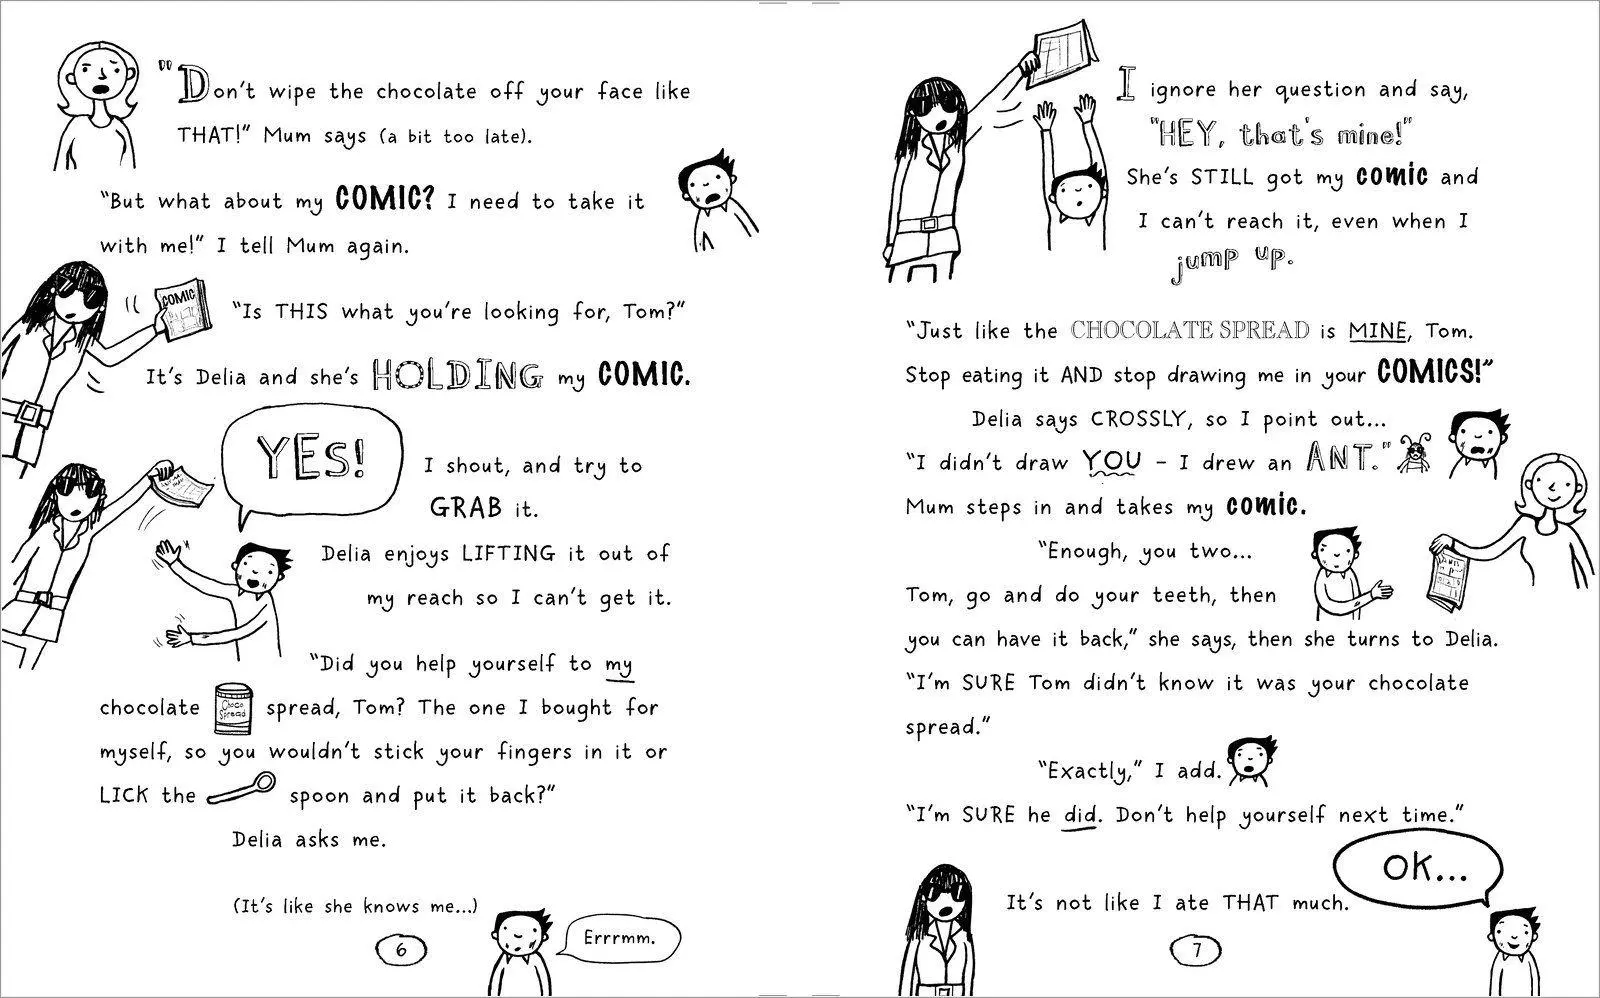 "Don't wipe the chocolate off your face like
THAT!" Mum says (a bit too late).
"But what about my COMIC? I need to take it
with me!" I tell Mum again.
COMIC
"Is THIS what you're looking for, Tom?"
It's Delia and she's HOLDING my COMIC.
YES!
I shout, and try to
GRAB it.
Delia enjoys LIFTING it out of
my reach so I can't get it.
"Did you help yourself to my
chocolate spread, Tom? The one I bought for
Choco
Spread
myself, so you wouldn't stick your fingers in it or
LICK the spoon and put it back?"
Delia asks me.
(It's like she knows me...)
Errrmm.
6
I ignore her question and say,
"HEY, that's mine!"
She's STILL got my comic and
I can't reach it, even when I
jump up.
"Just like the CHOCOLATE SPREAD is MINE, Tom.
Stop eating it AND stop drawing me in your COMICS!"
Delia says CROSSLY, so I point out...
"I didn't draw YOU - I drew an ANT."
Mum steps in and takes my comic.
"Enough, you two...
Tom, go and do your teeth, then
you can have it back," she says, then she turns to Delia.
"I'm SURE Tom didn't know it was your chocolate
spread."
"Exactly," I add.
"I'm SURE he did. Don't help yourself next time."
OK...
It's not like I ate THAT much.
7